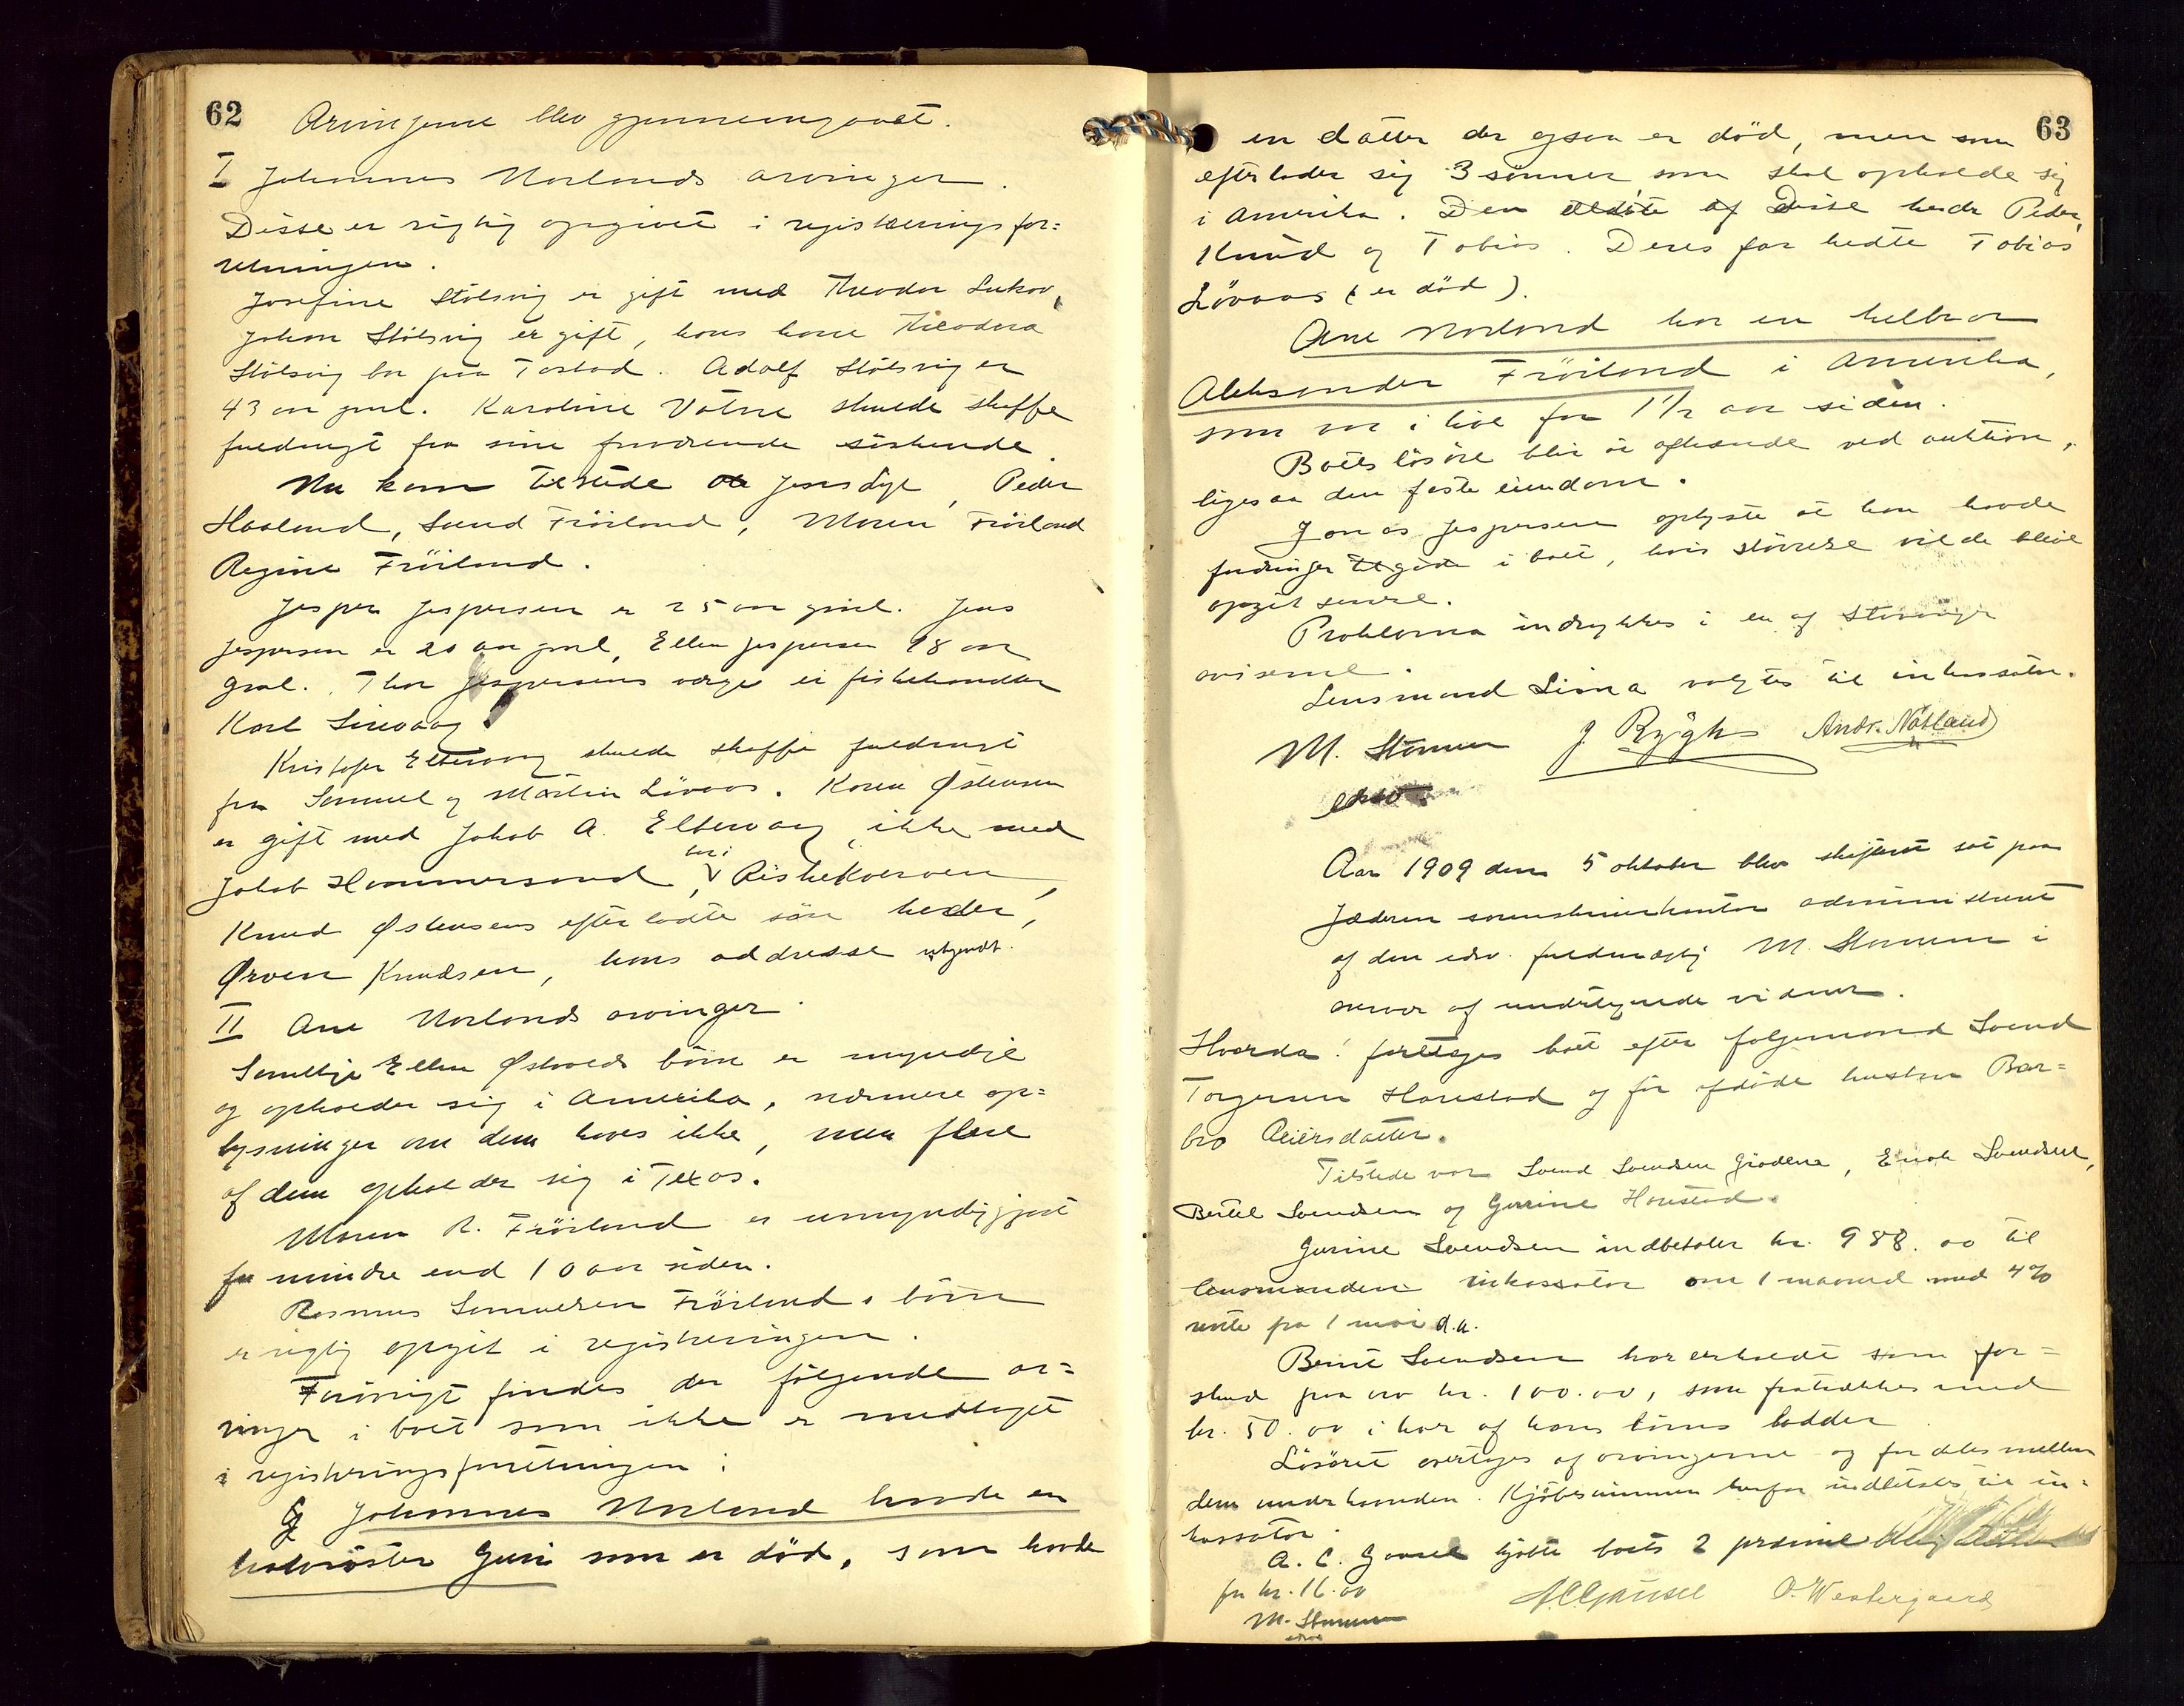 62
Arvingerne blev gjennemgaaet.
I Johannes Norlands arvinger.
Disse er rigtig opgivet i registreringsfor=
retningen.
Josefine Stölsvig er gift med Theodor
Johan Stölsvig er gift, hans kone Theodora
Stölsvig bor paa Tastad. Adolf Stölsvig er
43 aar gml. Karoline Votne skulde skaffe
fuldmagt fra sine fraværende söskende.
Nu kom tilstede Jens Lye, Peder
Haaland, Svend Fröiland, Maren Fröiland
Regine Fröiland.
Jesper Jespersen er 25 aar gml. Jens
Jespersen er 20 aar gml, Ellen Jespersen 18 aar
gml. Thor Jespersens verge er fiskehandler
Karl Sirevaag.
Kristofer Eltervaag skulde skaffe fuldmagt
fra Samuel og Martin Lövaas. Karen Østensen
er gift med Jakob A. Eltervaag, ikke med
Jakob Hommersand, bor i Riskekværven,
Knud Østensens efterladte sön heder,
Ørven Knudsen, hans addresse ubekjendt.
II Ane Norlands arvinger.
Ellen Østvolds börn er myndige
og opholder sig i Amerika, nærmere op=
lysninger om dem haves ikke, men flere
af dem opholder sig i Texas.
Maren R. Fröiland er umyndiggjort
for mindre end 10 aar siden.
Rasmus Samuelsen Fröilands börn
er rigtig opgit i registreringen.
Forövrigt findes der fölgende ar=
vinger i boet som ikke er medtaget
i registreringsforretningen:
Johannes Norland havde en
halvsöster Guri som er död, som havde
63
en datter der ogsaa er död, men som
efterlader sig 3 sönner som skal opholde sig
i Amerika. Den ældste af Disse heder Peder,
Knud og Tobias. Deres far hedte Tobias
Lövaas (er död).
Ane Norland har en helbror
Aleksander Fröiland i Amerika,
som var i live for 1 1/2 aar siden.
Boets lösöre blir at afhænde ved auktion,
ligesaa den faste eiendom.
Jonas Jespersen oplyste at han havde
fordringer tilgode i boet, hvis störrelse vilde blive
opgit senere.
Proklama indrykkes i en af Stavanger
aviserne.
Lensmand Lima valgtes til inkassator.
M. Stormer J. Rygh Andr. Nåtland
edsv.
Aar 1909 den 5 oktober blev skifteret sat paa
Jæderen sorenskriverkontor administreret
af den edsv. fuldmægtig M. Stormer i
nærvær af undertegnede vidner.
Hvorda: foretages boet efter folgemand Svend
Torgersen Hanestad og för afdöde hustru Bar=
bro Reiersdatter.
Tilstede var Svend Svendsen Grödene, Enok Svendsen,
Bertel Svendsen og Gurine Hanestad.
Gurine Svendsen indbetaler kr. 988.00 til
lensmanden inkassator om 1 maaned med 4%
rente fra 1 mai d.a.
Bernt Svendsen har erholdt som for=
skud paa arv kr. 100.00, som fratrækkes med
kr. 50.00 i hver af hans börns lodder.
Lösöret overtages af arvingerne og fordeles mellem
dem underhaanden. Kjöbesummen herfor indbetales til in=
kassator.
A. C. Gausel kjöbte boets 2
for kr. 16.00
A C Gausel O. Westergaard
M. Stormer
edsv.